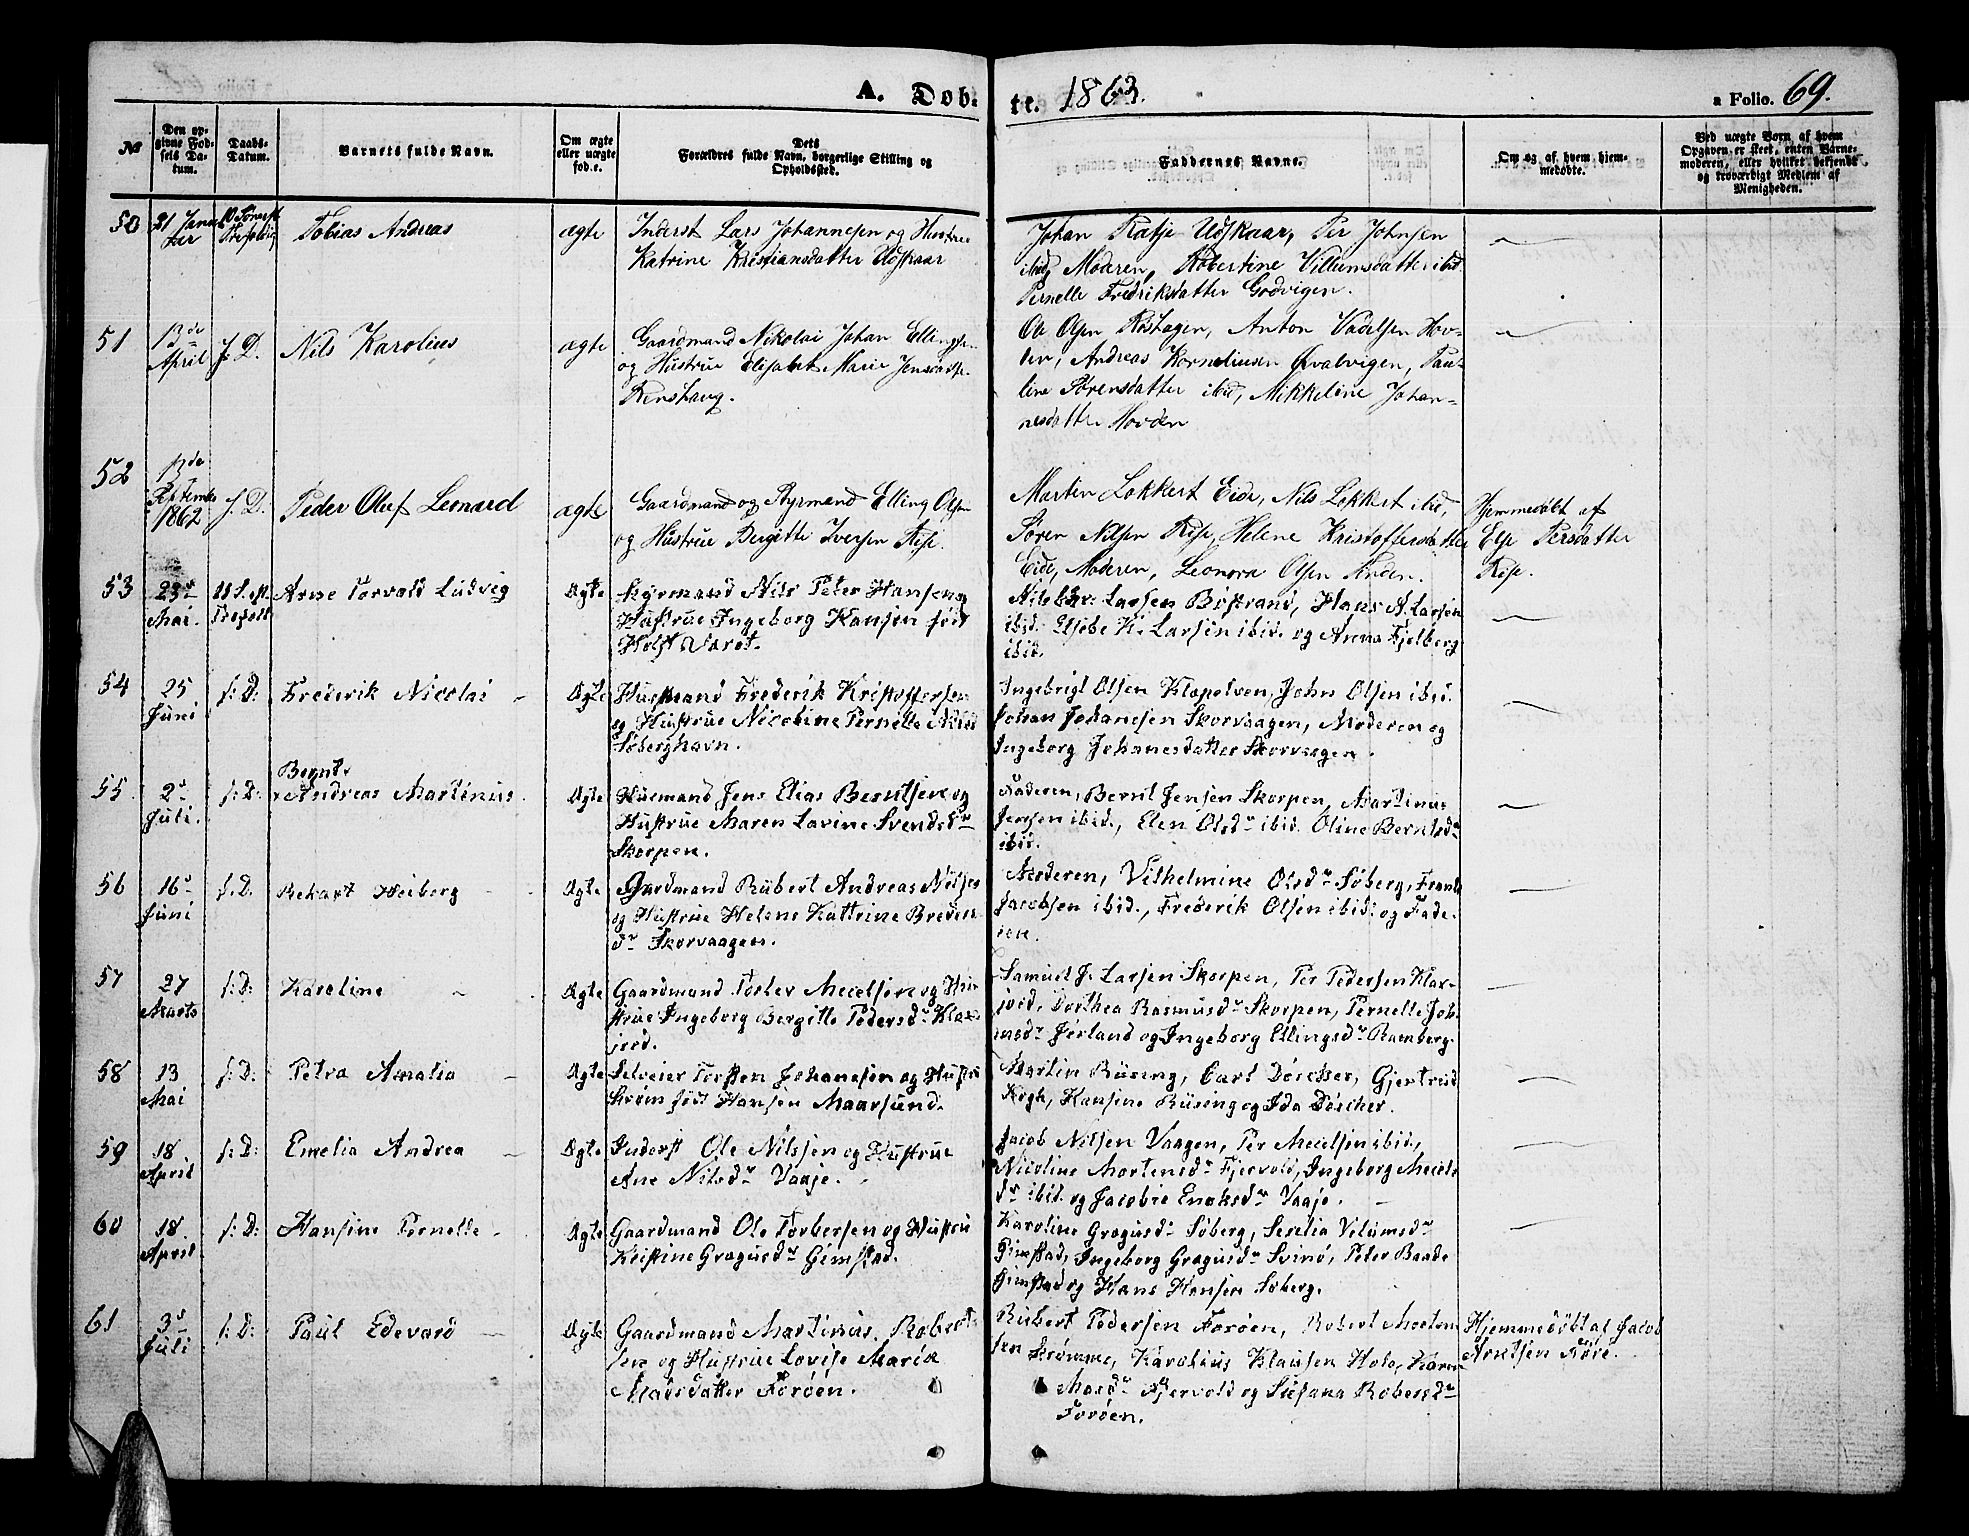 A. Døb- te. 1863. a Folio. 69.
№
Den op-
givne Fød-
sels Da-
tum.
Daabs-
Datum.
Barnets fulde Navn.
Om ægte
eller uægte
fød.e.
Dets
Forældres fulde Navn, borgerlige Stilling og
Opholdssted.
Faddernes Navne.
Om og af hvem hjem-
medøbte.
Ved uægte Børn af hvem
Opgaven er skeet, enten Barne-
moderen, eller hvilket bekjendt
og troværdigt Medlem af
Menigheden.
50
21 Janu
ar
Tobias Andreas
ægte
Inderst Lars Johannesen og Hustrue
Katrine Kristiansdatter Udskaar
Johan Ratje Udskaar, Per Johnsen
ibid, Moderen, Robertine Villumsdatter ibid
Pernelle Fredriksdatter Godvigen.
51
13de
April
f. D.
Nils Karolius
ægte
Gaardmand Nikolai Johan Ellingsen
og Hustrue Elisabet Marie Jensdatter
Renshaug.
Ole Olsen Roshagen, Anton Vadelsen Hov-
den, Andreas Kornelius en Qvalvigen, Pau-
line Sørensdatter ibid, Mikkeline Johan-
nesdatter Hovden
52
13de
September
1862
f. D.
Peder Oluf Leonard
ægte
Gaardmand og Styrmand Elling Olsen
og Hustrue Bergitte Iversen Rise.
Martin Lokkert Eide, Nils Lokkert ibid,
Søren Nilsen Rise, Helene Kristoffersdatter
Eide, Moderen, Leonora Olsen Finden.
Hjemmedøbt af
Else Persdatter
Rise.
53
23d
Mai.
11 S. eft.
Trefold
Arne Torvald Ludvig
Ægte
Styrmand Nils Peter Hansen og
Hustrue Ingeborg Hansen født
Holst Varøt.
Nils Chr. Larsen Bøstrand, Hans A. Larsen
ibid. Elsebe K. Larsen ibid. og Anna Fjelberg
ibid.
54
25
Juni
f: D:
Frederik Nicolai
Ægte
Huusmand Frederik Kristoffersen
og Hustrue Nicoline Pernelle Nilsd
Søberghavn.
Ingebrigt Olsen Klapelven, John Olsen ibid.
Johan Johansen Skorvaagen, Moderen og
Ingeborg Johanesdatter Skorvaagen.
55
2d
Juli.
f: D:
Bernt
Andreas Martinus
Ægte
Huusmand Jens Elias Berntsen og
Hustrue Maren Lavine Svendsdr
Skorpen.
Faderen, Bernt Jensen Skorpen, Martinus
Jensen ibid., Elen Olsdr ibid. Oline Berntsdr
ibid.
56
16d
Juni
f: D:
Rekart Heiberg
Ægte
Gardmand Rubert Andreas Nilsen
og Hustrue Helene Kattrine Breden
dr Skorvaagen.
Moderen, Vilhelmine Olsdr Søberg, Frants
Jacobsen ibid., Frederik Olsen ibid: og Fade-
ren.
57
27
Marts
f: D:
Karoline
Ægte
Gaardmand Torlev Mecelsen og Hu-
strue Ingeborg Bergitte Pedersdr Klax-
joed.
Samuel J. Larsen Skorpen, Per Pedersen Klax-
joed, Dorthea Rasmusdr Skorpen, Pernelle Joh
nsdr Ferland og Ingeborg Ellingsdr Ramberg.
58
13
Mai
f: D:
Petra Amalia
Ægte
Selveier Torsten Johanesen og Hustru
Strøm født Hansen Maarsund.
Martin Rüsing, Carl Dörcher, Gjertrud
Krgh, Hansine Rüsing og Ida Dörcher.
59
18
April
f: D:
Emelia Andrea
Ægte
Inderst Ole Nilssen og Hustrue
Ane Nilsdr Vaaje.
Jacob Nilsen Vaagen, Per Mecelsen ibid.,
Nicoline Mortensdr Fjervold, Ingeborg Mecels
dr ibid. og Jacobie Enoksdr Vaaje.
60
18
April
f: D:
Hansine Pernelle
Ægte
Gaardmand Ole Torbersen og Hustru
Kristine Gragusdr Gimstad.
Karoline Gragusdr Søberg, Seselia Velumsdr
Gimstad, Ingeborg Gragusdr Svinø, Peter Baade
Gimstad og Hans Hansen Søberg.
61
3d
Juli
f: D:
Paul Edevard
Ægte
Gaardmand Martinus Robert-
sen og Hustrue Lovise Maria
Madsdatter Forøen.
Rubert Pedersen Forøen, Robert Morten
sen Strømme, Karolius Klausen Hole, Karen
Masdr Fjervold og Susana Robersdr
Forøen.
Hjemmedøbt af Jacob
Arntsen Føre.